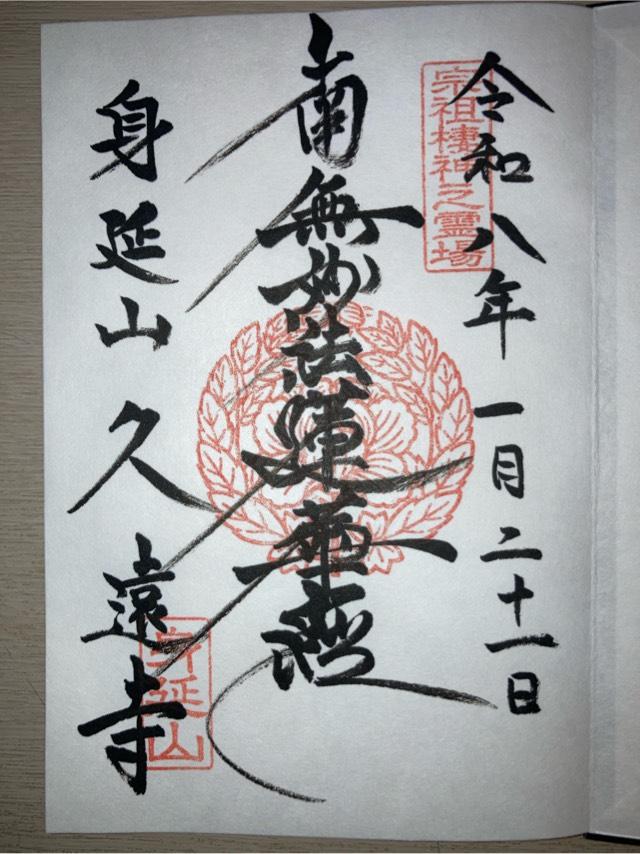 令和八年一月二十一日
宗祖棲神之霊場
南無妙法蓮華経
身延山久遠寺
身延山